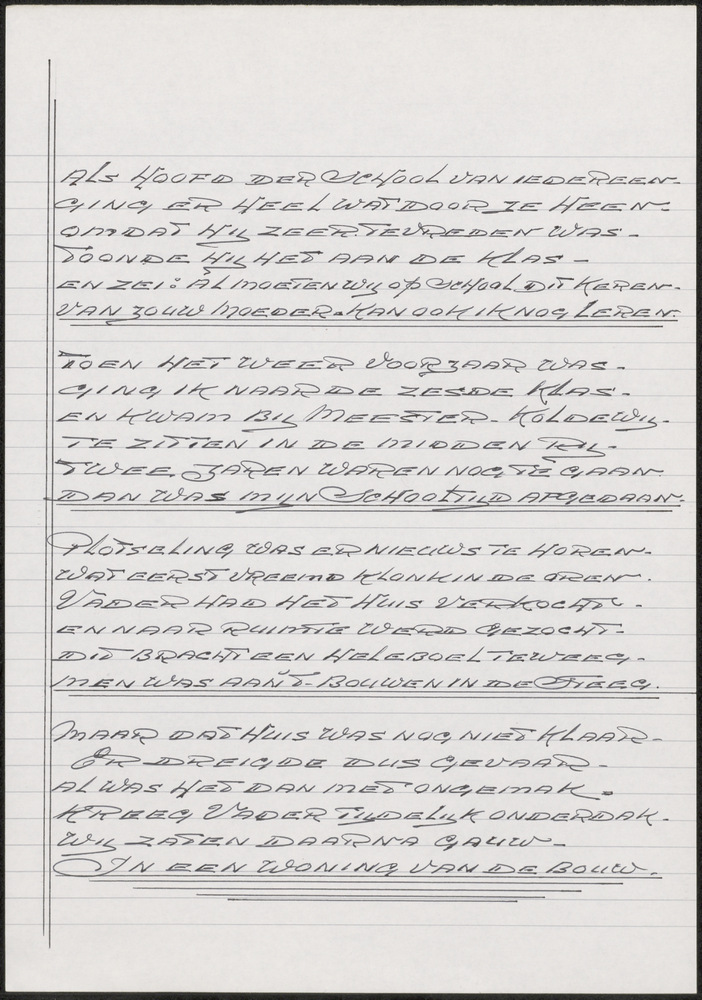 ALS HOOFD DER SCHOOL VAN IEDEREEN-
GING ER HEEL WAT DOOR ZE HEEN-
OMDAT HIJ ZEER TEVREDEN WAS-
TOONDE HIJ HET AAN DE KLAS-
EN ZEI: AL MOETEN WIJ OP SCHOOL DIT KEREN-
VAN JOUW MOEDER-KAN OOK IK NOG LEREN.
TOEN HET WEER VOORJAAR WAS-
GING IK NAAR DE ZESDE KLAS-
EN KWAM BIJ MEESTER-KOLDEWIJ-
TE ZITTEN IN DE MIDDEN RIJ-
TWEE JAREN WAREN NOG TE GAAN
DAN WAS MIJN SCHOOLTIJD AFGEDAAN-
PLOTSELING WAS ER NIEUWS TE HOREN-
WAT EERST VREEMD KLONK IN DE OREN-
VADER HAD HET HUIS VERKOCHT-
EN NAAR RUIMTE WERD GEZOCHT-
DIT BRACHT EEN HELEBOEL TEWEEG-
MEN WAS AAN'T-BOUWEN IN DE STEEG.
MAAR DAT HUIS WAS NOG NIET KLAAR-
ER DREIGDE DUS GEVAAR-
AL WAS HET DAN MET ONGEMAK-
KREEG VADER TIJDELIJK ONDERDAK-
WIJ ZATEN DAARNA GAUW-
IN EEN WONING VAN DE BOUW.